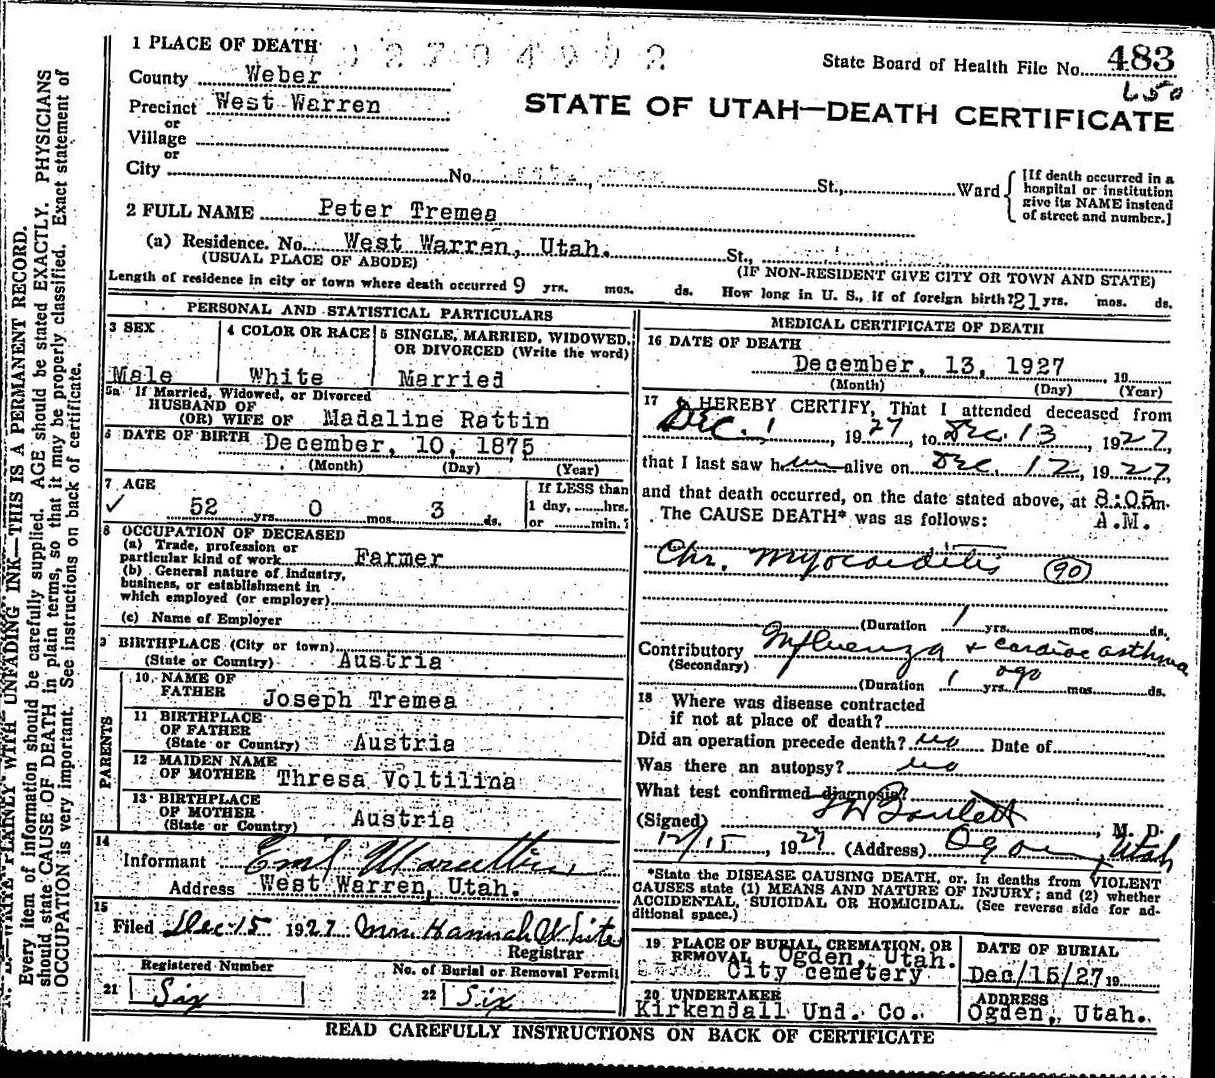 1 PLACE OF DEATH
State Board of Health File No. 483
County Weber
Precinct West Warren
STATE OF UTAH—DEATH CERTIFICATE
or
Village
or
City No. St., Ward
[If death occurred in a hospital or institution give its NAME instead of street and number.]
2 FULL NAME Peter Tremea
(a) Residence. No. West Warren, Utah. St.,
(USUAL PLACE OF ABODE) (IF NON-RESIDENT GIVE CITY OR TOWN AND STATE)
Length of residence in city or town where death occurred 9 yrs. mos. ds. How long in U. S., if of foreign birth? 21 yrs. mos. ds.
PERSONAL AND STATISTICAL PARTICULARS
3 SEX 4 COLOR OR RACE 5 SINGLE, MARRIED, WIDOWED, OR DIVORCED (Write the word)
Male White Married
5a If Married, Widowed, or Divorced
HUSBAND OF
(OR) WIFE OF Madaline Rattin
6 DATE OF BIRTH December, 10, 1875
(Month) (Day) (Year)
7 AGE If LESS than
52 yrs. 0 mos. 3 ds. 1 day, hrs.
or min.?
8 OCCUPATION OF DECEASED
(a) Trade, profession or
particular kind of work Farmer
(b) General nature of industry,
business, or establishment in
which employed (or employer)
(c) Name of Employer
9 BIRTHPLACE (City or town)
(State or Country) Austria
PARENTS
10 NAME OF
FATHER Joseph Tremea
11 BIRTHPLACE
OF FATHER
(State or Country) Austria
12 MAIDEN NAME
OF MOTHER Thresa Voltilina
13 BIRTHPLACE
OF MOTHER
(State or Country) Austria
14
Informant
Address West Warren, Utah.
15
Filed Dec 15 1927 Mrs. Hannah White
Registrar
Registered Number No. of Burial or Removal Permit
21 Six 22 Six
MEDICAL CERTIFICATE OF DEATH
16 DATE OF DEATH
December, 13, 1927 19
(Month) (Day) (Year)
17 I HEREBY CERTIFY, That I attended deceased from
Dec. 1, 1927, to Dec. 13, 1927,
that I last saw him alive on Dec. 12, 1927,
and that death occurred, on the date stated above, at 8:05 m.
The CAUSE DEATH* was as follows: A.M.
Chr. Myocarditis (90)
(Duration 1 yrs. mos. ds.
Contributory Influenza & cardiac asthma
(Secondary)
(Duration 1 yrs. ago mos. ds.
18 Where was disease contracted
if not at place of death?
Did an operation precede death? no Date of
Was there an autopsy? no
What test confirmed diagnosis?
(Signed) , M. D.
12/15, 1927 (Address) Ogden, Utah
*State the DISEASE CAUSING DEATH, or, in deaths from VIOLENT
CAUSES state (1) MEANS AND NATURE OF INJURY; and (2) whether
ACCIDENTAL, SUICIDAL OR HOMICIDAL. (See reverse side for ad-
ditional space.)
19 PLACE OF BURIAL, CREMATION, OR DATE OF BURIAL
REMOVAL Ogden, Utah.
City cemetery Dec/15/27 19
20 UNDERTAKER ADDRESS
Kirkendall Und. Co. Ogden, Utah.
READ CAREFULLY INSTRUCTIONS ON BACK OF CERTIFICATE
WRITE PLAINLY WITH UNFADING INK—THIS IS A PERMANENT RECORD.
Every item of information should be carefully supplied. AGE should be stated EXACTLY. PHYSICIANS
should state CAUSE OF DEATH in plain terms, so that it may be properly classified. Exact statement of
OCCUPATION is very important. See instructions on back of certificate.